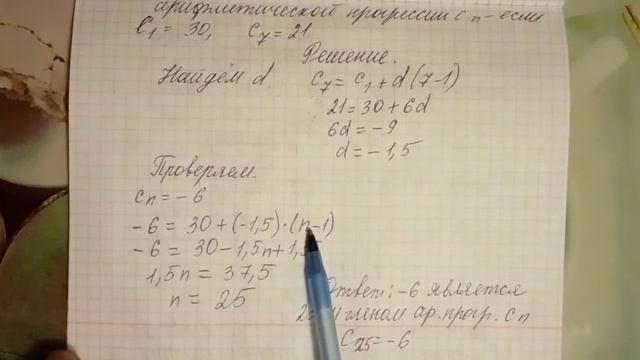 арифметической прогрессии c_n - если
C_1 = 30, C_7 = 21
Решение.
Найдём d. C_7 = C_1 + d(7-1)
21 = 30 + 6d
6d = -9
d = -1,5
Проверяем.
C_n = -6
-6 = 30 + (-1,5)·(n-1)
-6 = 30 - 1,5n + 1,5
1,5n = 37,5
n = 25
Ответ: -6 является
членом ар. прогр. C_n
C_25 = -6